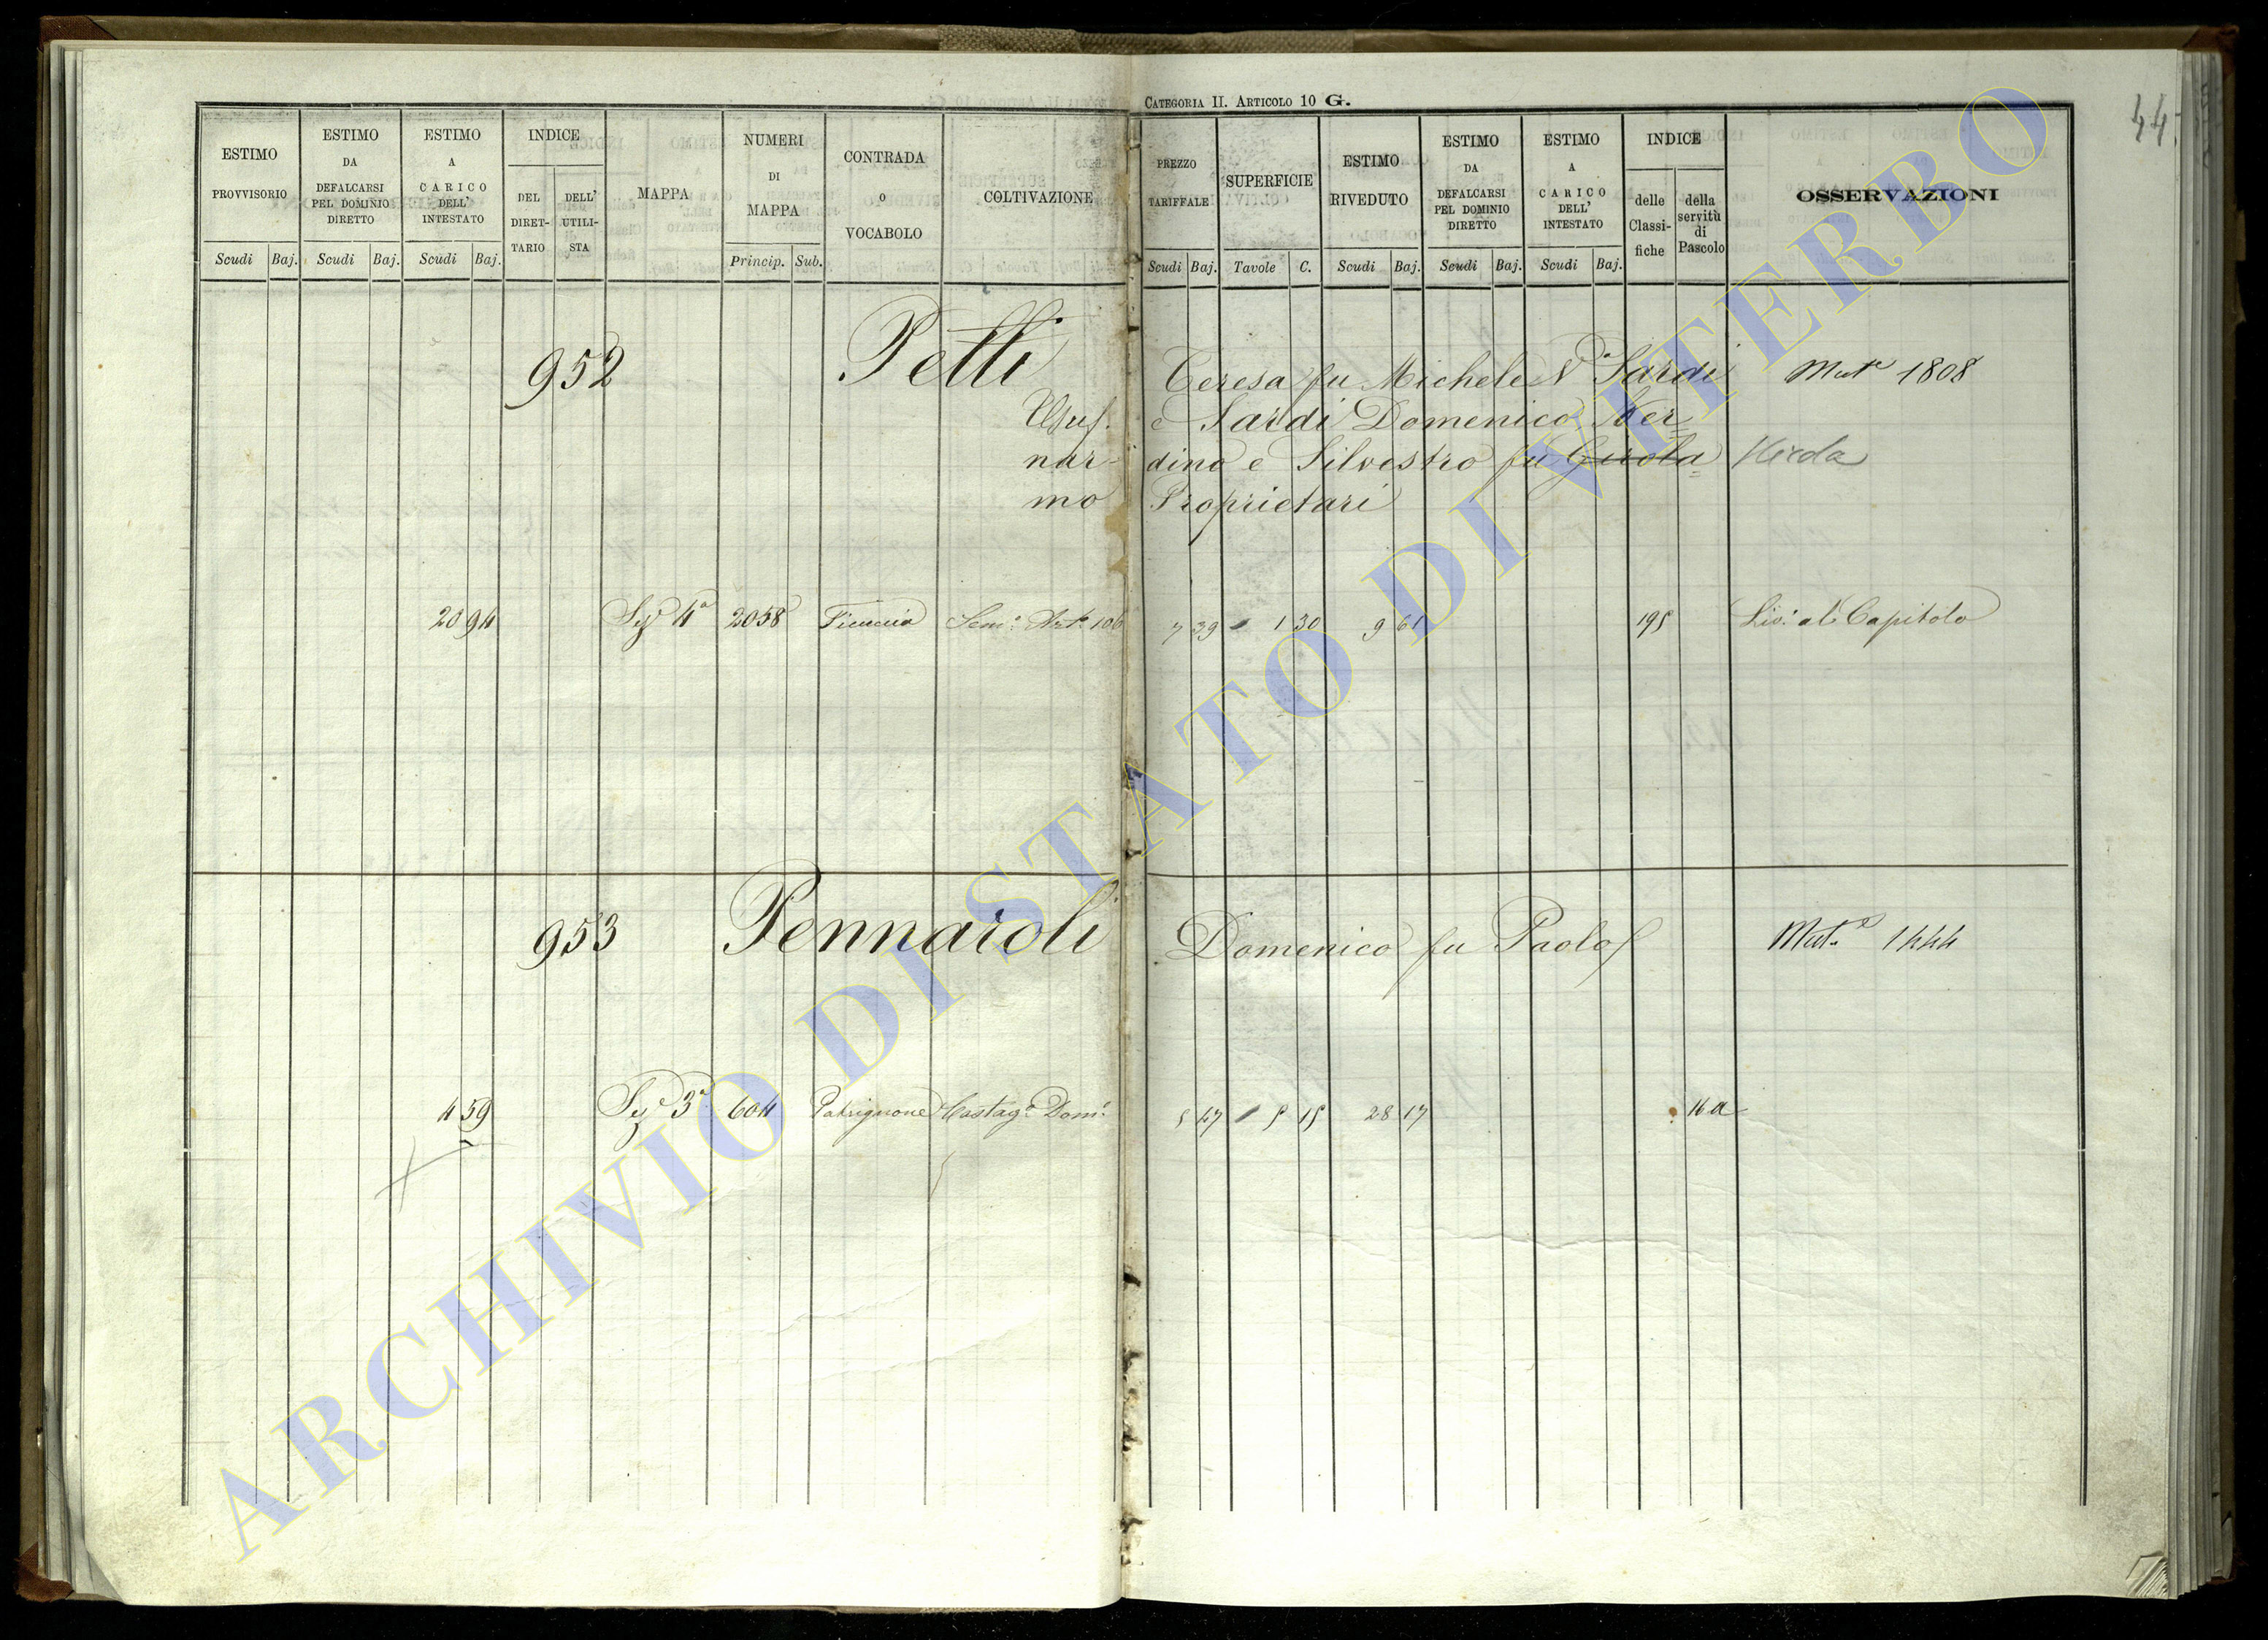 CATEGORIA II. ARTICOLO 10 G.
44
ESTIMO PROVVISORIO
ESTIMO DA DEFALCARSI PEL DOMINIO DIRETTO
ESTIMO A CARICO DELL' INTESTATO
INDICE
DEL DIRETTARIO
DELL' UTILISTA
MAPPA
NUMERI DI MAPPA
CONTRADA O VOCABOLO
COLTIVAZIONE
PREZZO TARIFFALE
SUPERFICIE
ESTIMO RIVEDUTO
ESTIMO DA DEFALCARSI PEL DOMINIO DIRETTO
ESTIMO A CARICO DELL' INTESTATO
INDICE
delle Classifiche
della servitù di Pascolo
OSSERVAZIONI
Scudi Baj. Scudi Baj. Scudi Baj. Princip. Sub. Scudi Baj. Tavole C. Scudi Baj. Scudi Baj. Scudi Baj.
952 Petti Teresa fu Michele Sardi Mut.e 1808
Usuf. e Sardi Domenico, Ber
nar- dino e Silvestro fu Girola=
mo Proprietari
20 94 Sez.e 4a 2058 Sem.o 106 7 39 1 30 9 61 195 Liv.o al Capitolo
953 Pennaroli Domenico fu Paolo Mut.e 1444
4 59 Sez.e 3a 604 Patrignone Castag.o Dom.o 5 47 5 15 28 17 16 a
ARCHIVIO DI STATO DI VITERBO